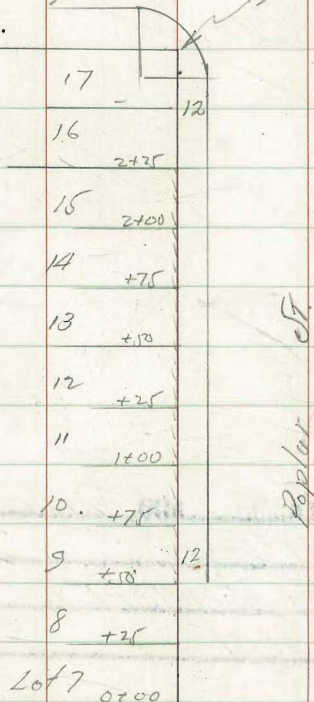 17
12
16
2+25
15
2+00
14
+75
13
+50
12
+25
11
1+00
10.
+75
9
+50
12
8
+25
Lot 7
0+00
Poplar St.